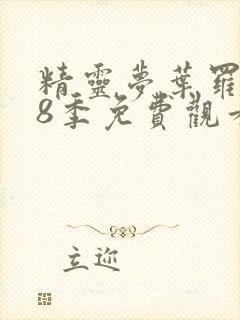 精靈夢葉羅
8季免費觀
立迩